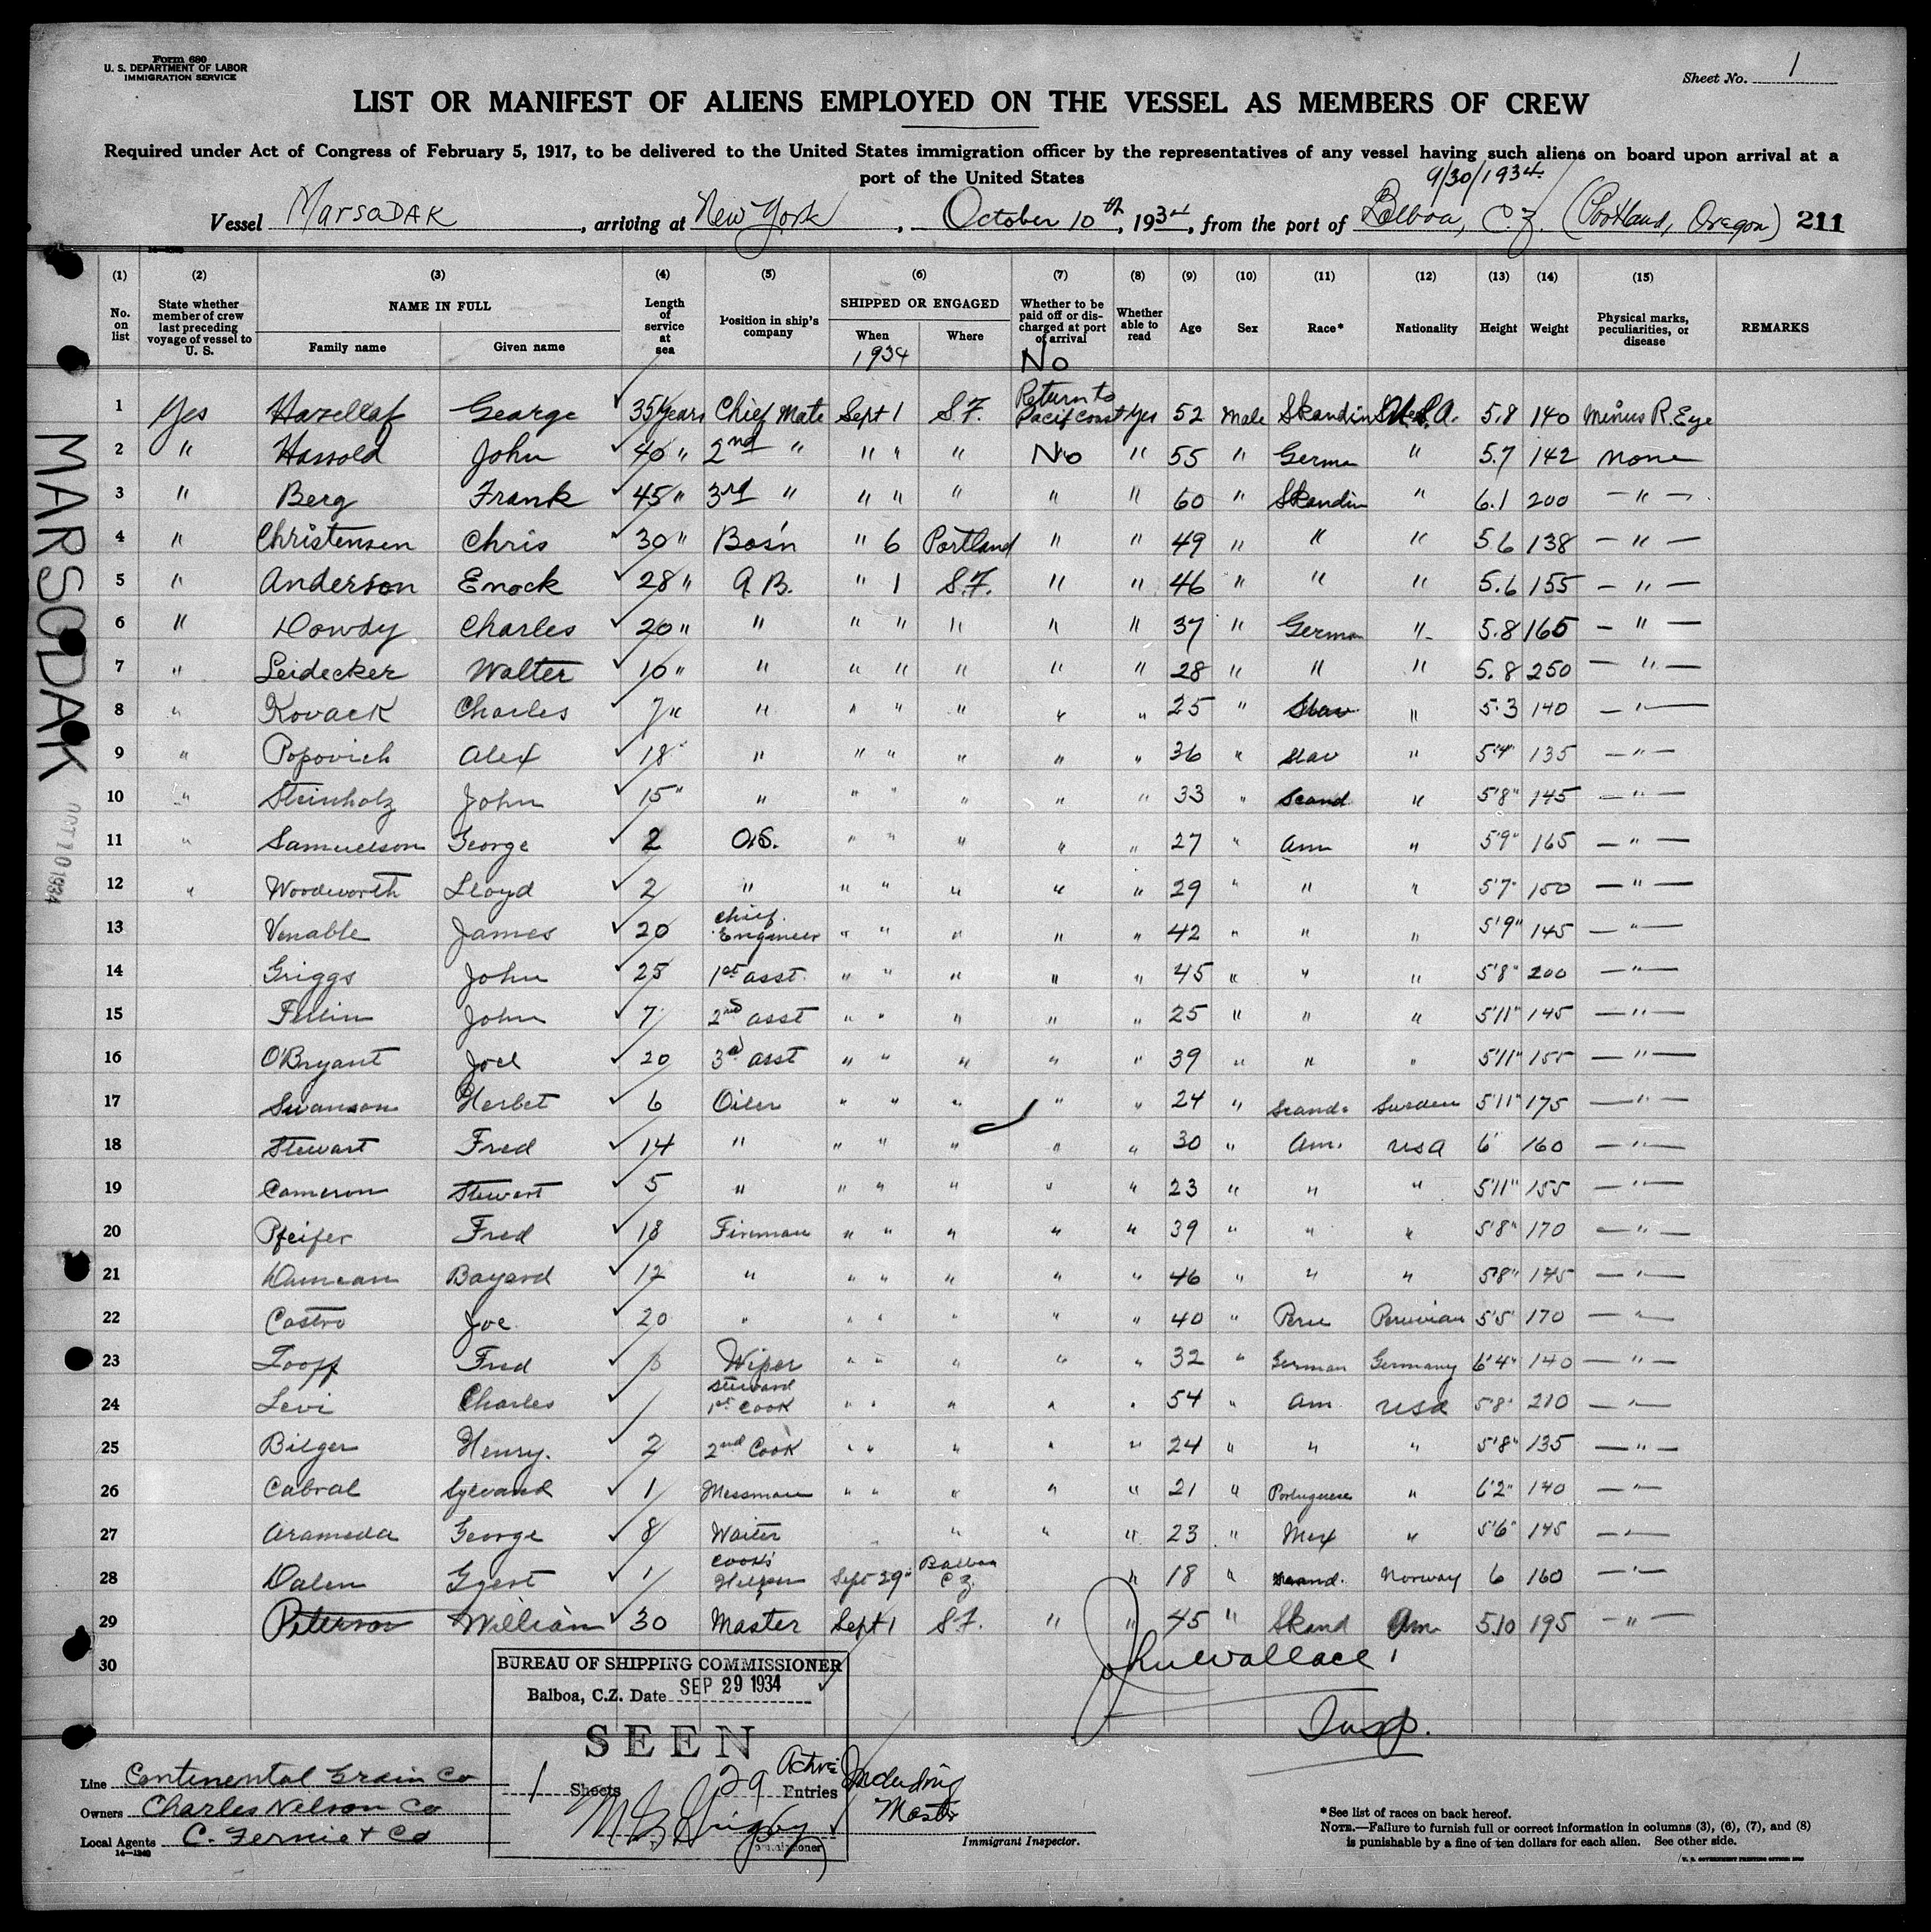 Form 680
U. S. DEPARTMENT OF LABOR
IMMIGRATION SERVICE
Sheet No. 1
LIST OR MANIFEST OF ALIENS EMPLOYED ON THE VESSEL AS MEMBERS OF CREW
Required under Act of Congress of February 5, 1917, to be delivered to the United States immigration officer by the representatives of any vessel having such aliens on board upon arrival at a
port of the United States
9/30/1934
Vessel MARSODAK, arriving at New York, October 10th, 1934, from the port of Balboa, C.Z. (Portland, Oregon) 211
(1) (2) (3) (4) (5) (6) (7) (8) (9) (10) (11) (12) (13) (14) (15)
No. on list State whether member of crew last preceding voyage of vessel to U. S. NAME IN FULL Family name Given name Length of service at sea Position in ship's company SHIPPED OR ENGAGED When Where Whether to be paid off or discharged at port of arrival Whether able to read Age Sex Race* Nationality Height Weight Physical marks, peculiarities, or disease REMARKS
1934 No
1 Yes Hazellaf George 35 Years Chief Mate Sept 1 S.F. Return to Pacif Coast Yes 52 Male Skandin U.S.A. 5.8 140 Minus R. Eye
2 " Hassold John 40 " 2nd " " " " No " 55 " Germa " 5.7 142 none
3 " Berg Frank 45 " 3rd " " " " " " 60 " Skandin " 6.1 200 "
4 " Christensen Chris 30 " Bos'n " 6 Portland " " 49 " " " 5.6 138 "
5 " Anderson Enock 28 " A.B. " 1 S.F. " " 46 " " " 5.6 155 "
6 " Dowdy Charles 20 " " " " " " " 37 " German " 5.8 165 "
7 " Leidecker Walter 10 " " " " " " " 28 " " " 5.8 250 "
8 " Kovack Charles 7 " " " " " " " 25 " Slav " 5.3 140 "
9 " Popovich Alex 18 " " " " " " 36 " Slav " 5'4" 135 "
10 " Steinholz John 15 " " " " " " " 33 " Scand. " 5'8" 145 "
11 " Samuelson George 2 O.S. " " " " " 27 " Am " 5'9" 165 "
12 " Woodworth Lloyd 2 " " " " " " 29 " " " 5'7" 150 "
13 Venable James 20 Chief Engineer " " " " " 42 " " " 5'9" 145 "
14 Griggs John 25 1st asst. " " " " " 45 " " " 5'8" 200 "
15 John 7 2nd asst " " " " " 25 " " " 5'11" 145 "
16 O'Bryant Joel 20 3d asst " " " " " 39 " " " 5'11" 155 "
17 Swanson Herbet 6 Oiler " " " " " 24 " Scand. Sweden 5'11" 175 "
18 Stewart Fred 14 " " " " " " 30 " Am. USA 6' 160 "
19 Cameron Stewart 5 " " " " " " 23 " " " 5'11" 155 "
20 Pfeifer Fred 18 Fireman " " " " " 39 " " " 5'8" 170 "
21 Duncan Bayard 12 " " " " " " 46 " " " 5'8" 145 "
22 Castro Joe 20 " " " " " " 40 " Peru Peruvian 5'5" 170 "
23 Fred Wiper " " " " " 32 " German Germany 6'4" 140 "
24 Levi Charles Steward 1st Cook " " " " " 54 " Am USA 5'8" 210 "
25 Bilger Henry. 2 2nd Cook " " " " " 24 " " " 5'8" 135 "
26 Cabral 1 Messman " " " " " 21 " Portuguese " 6'2" 140 "
27 Arameda George 8 Waiter " " " 23 " Mex " 5'6" 145 "
28 Dalen 1 Cook's Helper Sept 29" Balboa C.Z. " 18 " Scand. Norway 6 160 "
29 Peterson William 30 Master Sept 1 S.F. " " 45 " Skand Am 5.10 195 "
30
Wallace
Insp.
BUREAU OF SHIPPING COMMISSIONER
Balboa, C.Z. Date SEP 29 1934
SEEN
1 Sheets 29 Active Entries Including Master
Commissioner
Line Continental Grain Co
Owners Charles Nelson Co
Local Agents C. Fernie & Co
14—1240
Immigrant Inspector.
*See list of races on back hereof.
NOTE.—Failure to furnish full or correct information in columns (3), (6), (7), and (8)
is punishable by a fine of ten dollars for each alien. See other side.
U. S. GOVERNMENT PRINTING OFFICE
MARSODAK
OCT 10 1934